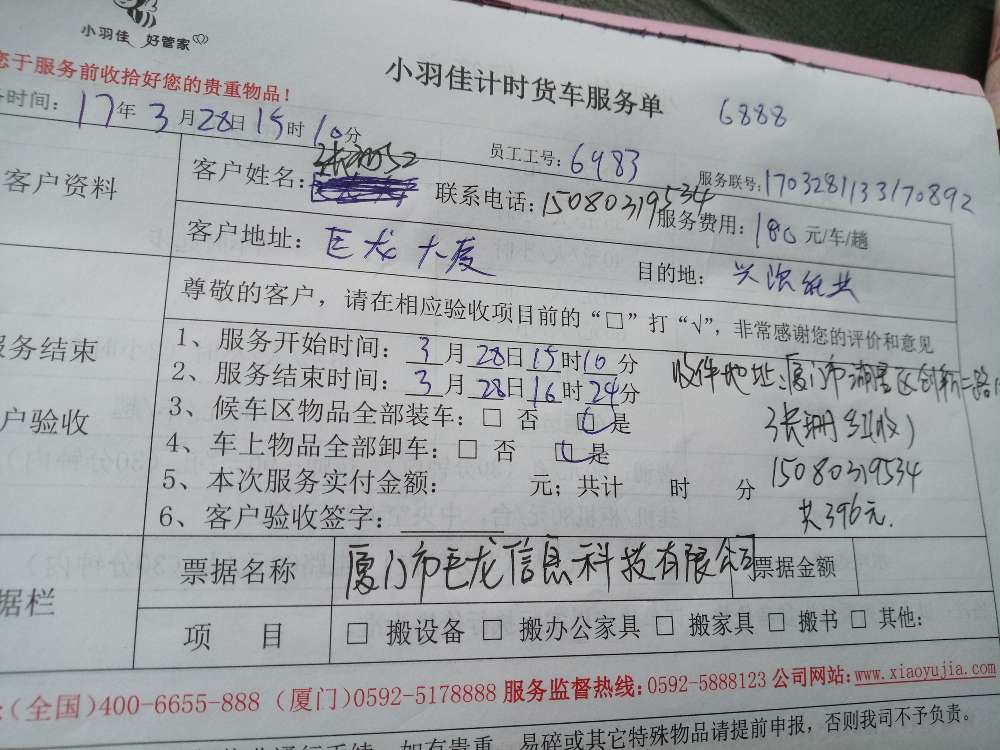 小羽佳 好管家
您于服务前收拾好您的贵重物品！
小羽佳计时货车服务单 6888
时间：17年3月28日15时10分 员工工号：6983 服务联号：1703281133170892
客户资料 客户姓名： 联系电话：15080319534 服务费用：180元/车/趟
客户地址：巨龙大厦 目的地：
尊敬的客户，请在相应验收项目前的“□”打“√”，非常感谢您的评价和意见
服务结束
户验收
1、服务开始时间：3月28日15时10分
2、服务结束时间：3月28日16时24分
3、候车区物品全部装车：□ 否 □是
4、车上物品全部卸车：□ 否 □是
5、本次服务实付金额： 元；共计 时 分
6、客户验收签字：
收件地址：厦门市湖里区创新二路
15080319534
共396元.
据栏 票据名称 厦门市巨龙信息科技有限公司 票据金额
项 目 □ 搬设备 □ 搬办公家具 □ 搬家具 □ 搬书 □ 其他：
：(全国)400-6655-888 (厦门)0592-5178888 服务监督热线：0592-5888123 公司网站：www.xiaoyujia.com
易碎或其它特殊物品请提前申报，否则我司不予负责。